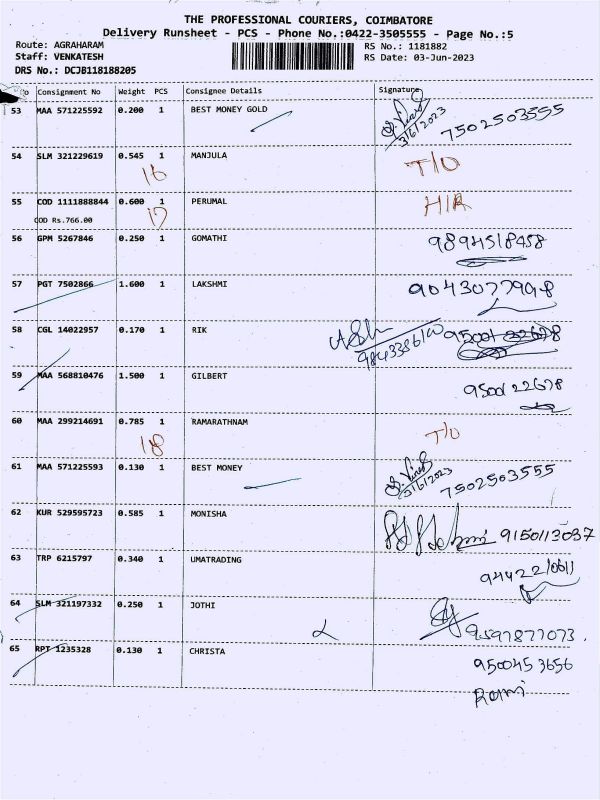 THE PROFESSIONAL COURIERS, COIMBATORE
Delivery Runsheet - PCS - Phone No.:0422-3505555 - Page No.:5
Route: AGRAHARAM RS No.: 1181882
Staff: VENKATESH RS Date: 03-Jun-2023
DRS No.: DCJB118188205
No Consignment No Weight PCS Consignee Details Signature
53 MAA 571225592 0.200 1 BEST MONEY GOLD
3/6/2023 7502503555
54 SLM 321229619 0.545 1 MANJULA T/O
16
55 COD 1111888844 0.600 1 PERUMAL H/R
COD Rs.766.00 17
56 GPM 5267846 0.250 1 GOMATHI 9894518458
57 PGT 7502866 1.600 1 LAKSHMI 9043077998
58 CGL 14022957 0.170 1 RIK
59 MAA 568810476 1.500 1 GILBERT 9500122678
60 MAA 299214691 0.785 1 RAMARATHNAM T/O
18
61 MAA 571225593 0.130 1 BEST MONEY
3/6/2023 7502503555
62 KUR 529595723 0.585 1 MONISHA 9150113037
63 TRP 6215797 0.340 1 UMATRADING 9442210611
64 SLM 321197332 0.250 1 JOTHI 9597877073
65 RPT 1235328 0.130 1 CHRISTA 9500453656